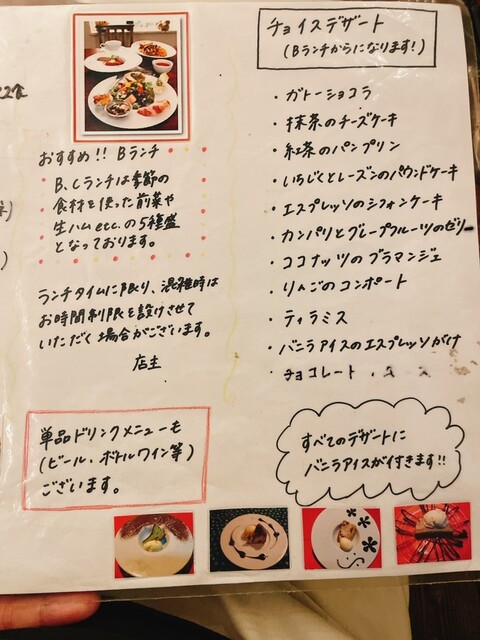 おすすめ!! Bランチ
B、Cランチは季節の
食材を使った前菜や
生ハムetc.の5種盛
となっております。
ランチタイムに限り、混雑時は
お時間制限を設けさせて
いただく場合がございます。
店主
単品ドリンクメニューも
(ビール、ボトルワイン等)
ございます。
チョイスデザート
(Bランチからになります!)
・ガトーショコラ
・抹茶のチーズケーキ
・紅茶のパンプリン
・いちじくとレーズンのパウンドケーキ
・エスプレッソのシフォンケーキ
・カンパリとグレープフルーツのゼリー
・ココナッツのブラマンジェ
・りんごのコンポート
・ティラミス
・バニラアイスのエスプレッソがけ
・チョコレート
すべてのデザートに
バニラアイスが付きます!!